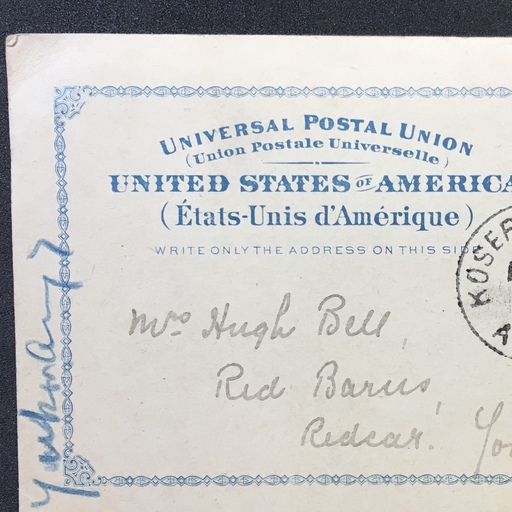 UNIVERSAL POSTAL UNION
(Union Postale Universelle)
UNITED STATES OF AMERICA
(États-Unis d'Amérique)
WRITE ONLY THE ADDRESS ON THIS SIDE
KOSER
A
Mrs Hugh Bell,
Red Barns,
Redcar. Yo